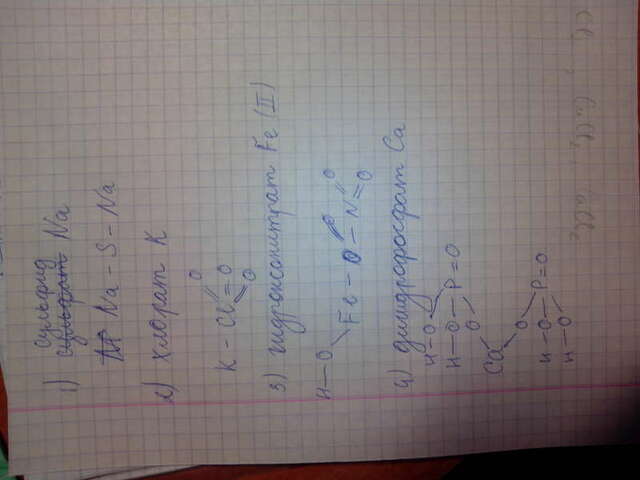 1) сульфид
сульфат Na
Na - S - Na
2) хлорат K
K - Cl = O
O
O
3) гидроксонитрат Fe (II)
H - O
Fe - O - N = O
O
4) дигидрофосфат Ca
H - O
H - O - P = O
O
Ca
O
H - O - P = O
H - O